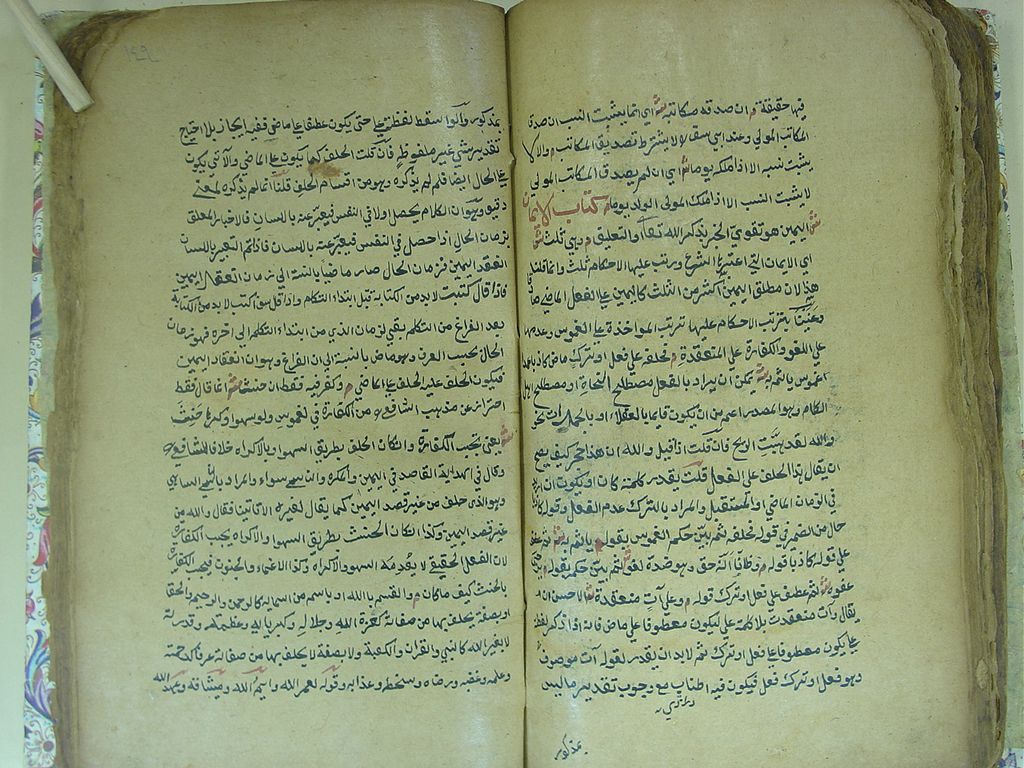 فيها حقيقة م وان صدقه مكاتبه ش اي انما يثبت النسب ان صدق
المكاتب المولى وعند ابي يوسف لا يشترط تصديق المكاتب م والا لا
يثبت نسبه الا اذا ملكه يوما ش اي ان لم يصدق المكاتب المولى
لا يثبت النسب الا اذا ملك المولى الولد يوما م كتاب الايمان
ش اليمين هو تقوي الخبر بذكر الله تعالى او التعليق م وهي ثلث ش
اي الايمان التي اعتبرها الشرع ورتب عليها الاحكام ثلث وانما قلنا
هذا لان مطلق اليمين اكثر من الثلث كاليمين على الفعل الماضي صادقا
وعنينا بترتب الاحكام عليها ترتب المواخذة على الغموس وعدمها
على اللغو والكفارة على المنعقدة م فحلفه على فعل او ترك ماض كاذبا عمدا
غموس ياثم به ش يمكن ان يراد بالفعل مصطلح النحاة او مصطلح اهل
الكلام وهو المصدر اعم من ان يكون قايما بالعقلاء او بالجمادات نحو
والله لقد هبت الريح فان قلت اذا قيل والله ان هذا حجر كيف يصح
ان يقال هذا الحلف على الفعل قلت يقدر كلمة كان او يكون ان
في الزمان الماضي او المستقبل والمراد بالترك عدم الفعل وقوله كاذبا
حال من الضمير في قوله فحلفه ثم بين حكم الغموس بقوله ياثم به ثم عطف
على قوله كاذبا قوله م وظانا انه حق وهو ضده لغو ش ثم بين حكمه بقوله يرجى
عفوه ش ثم عطف على فعل او ترك قوله م وعلى آت منعقدة ش الاحسن ان
يقال وآت منعقدة بلا كلمة على ليكون معطوفا على ماض فانه اذا ذكر لفظ
على يكون معطوفا على فعل او ترك ثم لا بد ان يقدر لقوله آت موصوف
وهو فعل او ترك فعل فيكون فيه اطناب مع وجوب تقدير ما ليس
بمذكور
بمذكور ولو اسقط لفظة على حتى يكون عطفا على ماض ففيه ايجاز بلا احتياج
تقدير شيء غير ملفوظ فان قلت الحلف كما يكون على الماضي والاتي يكون
على الحال ايضا فلم لم يذكره وهو من اقسام الحلف قلنا انما لم يذكره لمعنى
دقيق وهو ان الكلام يحصل اولا في النفس فيعبر عنه باللسان فالاخبار المعلق
بزمان الحال اذا حصل في النفس فيعبر عنه باللسان فاذا تم التعبير باللسان
انعقد اليمين فزمان الحال صار ماضيا بالنسبة الى زمان انعقاد اليمين
فاذا قال كتبت لا بد من الكتابة قبل ابتداء التكلم واذا قال سوف اكتب لا بد من الكتابة
بعد الفراغ من التكلم بقي زمان الذي من ابتداء التكلم الى اخره فهو زمان
الحال بحسب العرف وهو ماض بالنسبة الى ان الفراغ وهو ان انعقاد اليمين
فيكون الحلف عليه الحلف على الماضي م وكفر فيه فقط ان حنث ش انما قال فقط
احترازا عن مذهب الشافعي من الكفارة في الغموس م ولو سهوا او كرها حنث
ش يعني تجب الكفارة وان كان الحلف بطريق السهو او بالاكراه خلافا للشافعي
وقال في الهداية القاصد في اليمين والمكره والناسي سواء والمراد بالناسي الساهي
وهو الذي حلف من غير قصد اليمين كما يقال لغيره الا تاتينا فقال والله من
غير قصد اليمين وكذا ان كان الحنث بطريق السهو والاكراه يجب الكفارة
لان الفعل الحقيقي لا يعدمه السهو والاكراه وكذا الاغماء والجنون فيجب الكفارة
بالحنث كيف ما كان م والقسم بالله او باسم من اسمائه كالرحمن والرحيم والحق
او بصفة يحلف بها من صفاته كعزة الله وجلاله وكبريائه وعظمته وقدرته
لا بغير الله كالنبي والقران والكعبة ولا بصفة لا يحلف بها من صفاته عرفا كرحمته
وعلمه وغضبه ورضاه وسخطه وعذابه وقوله لعمر الله وايم الله وميثاقه وعهد الله